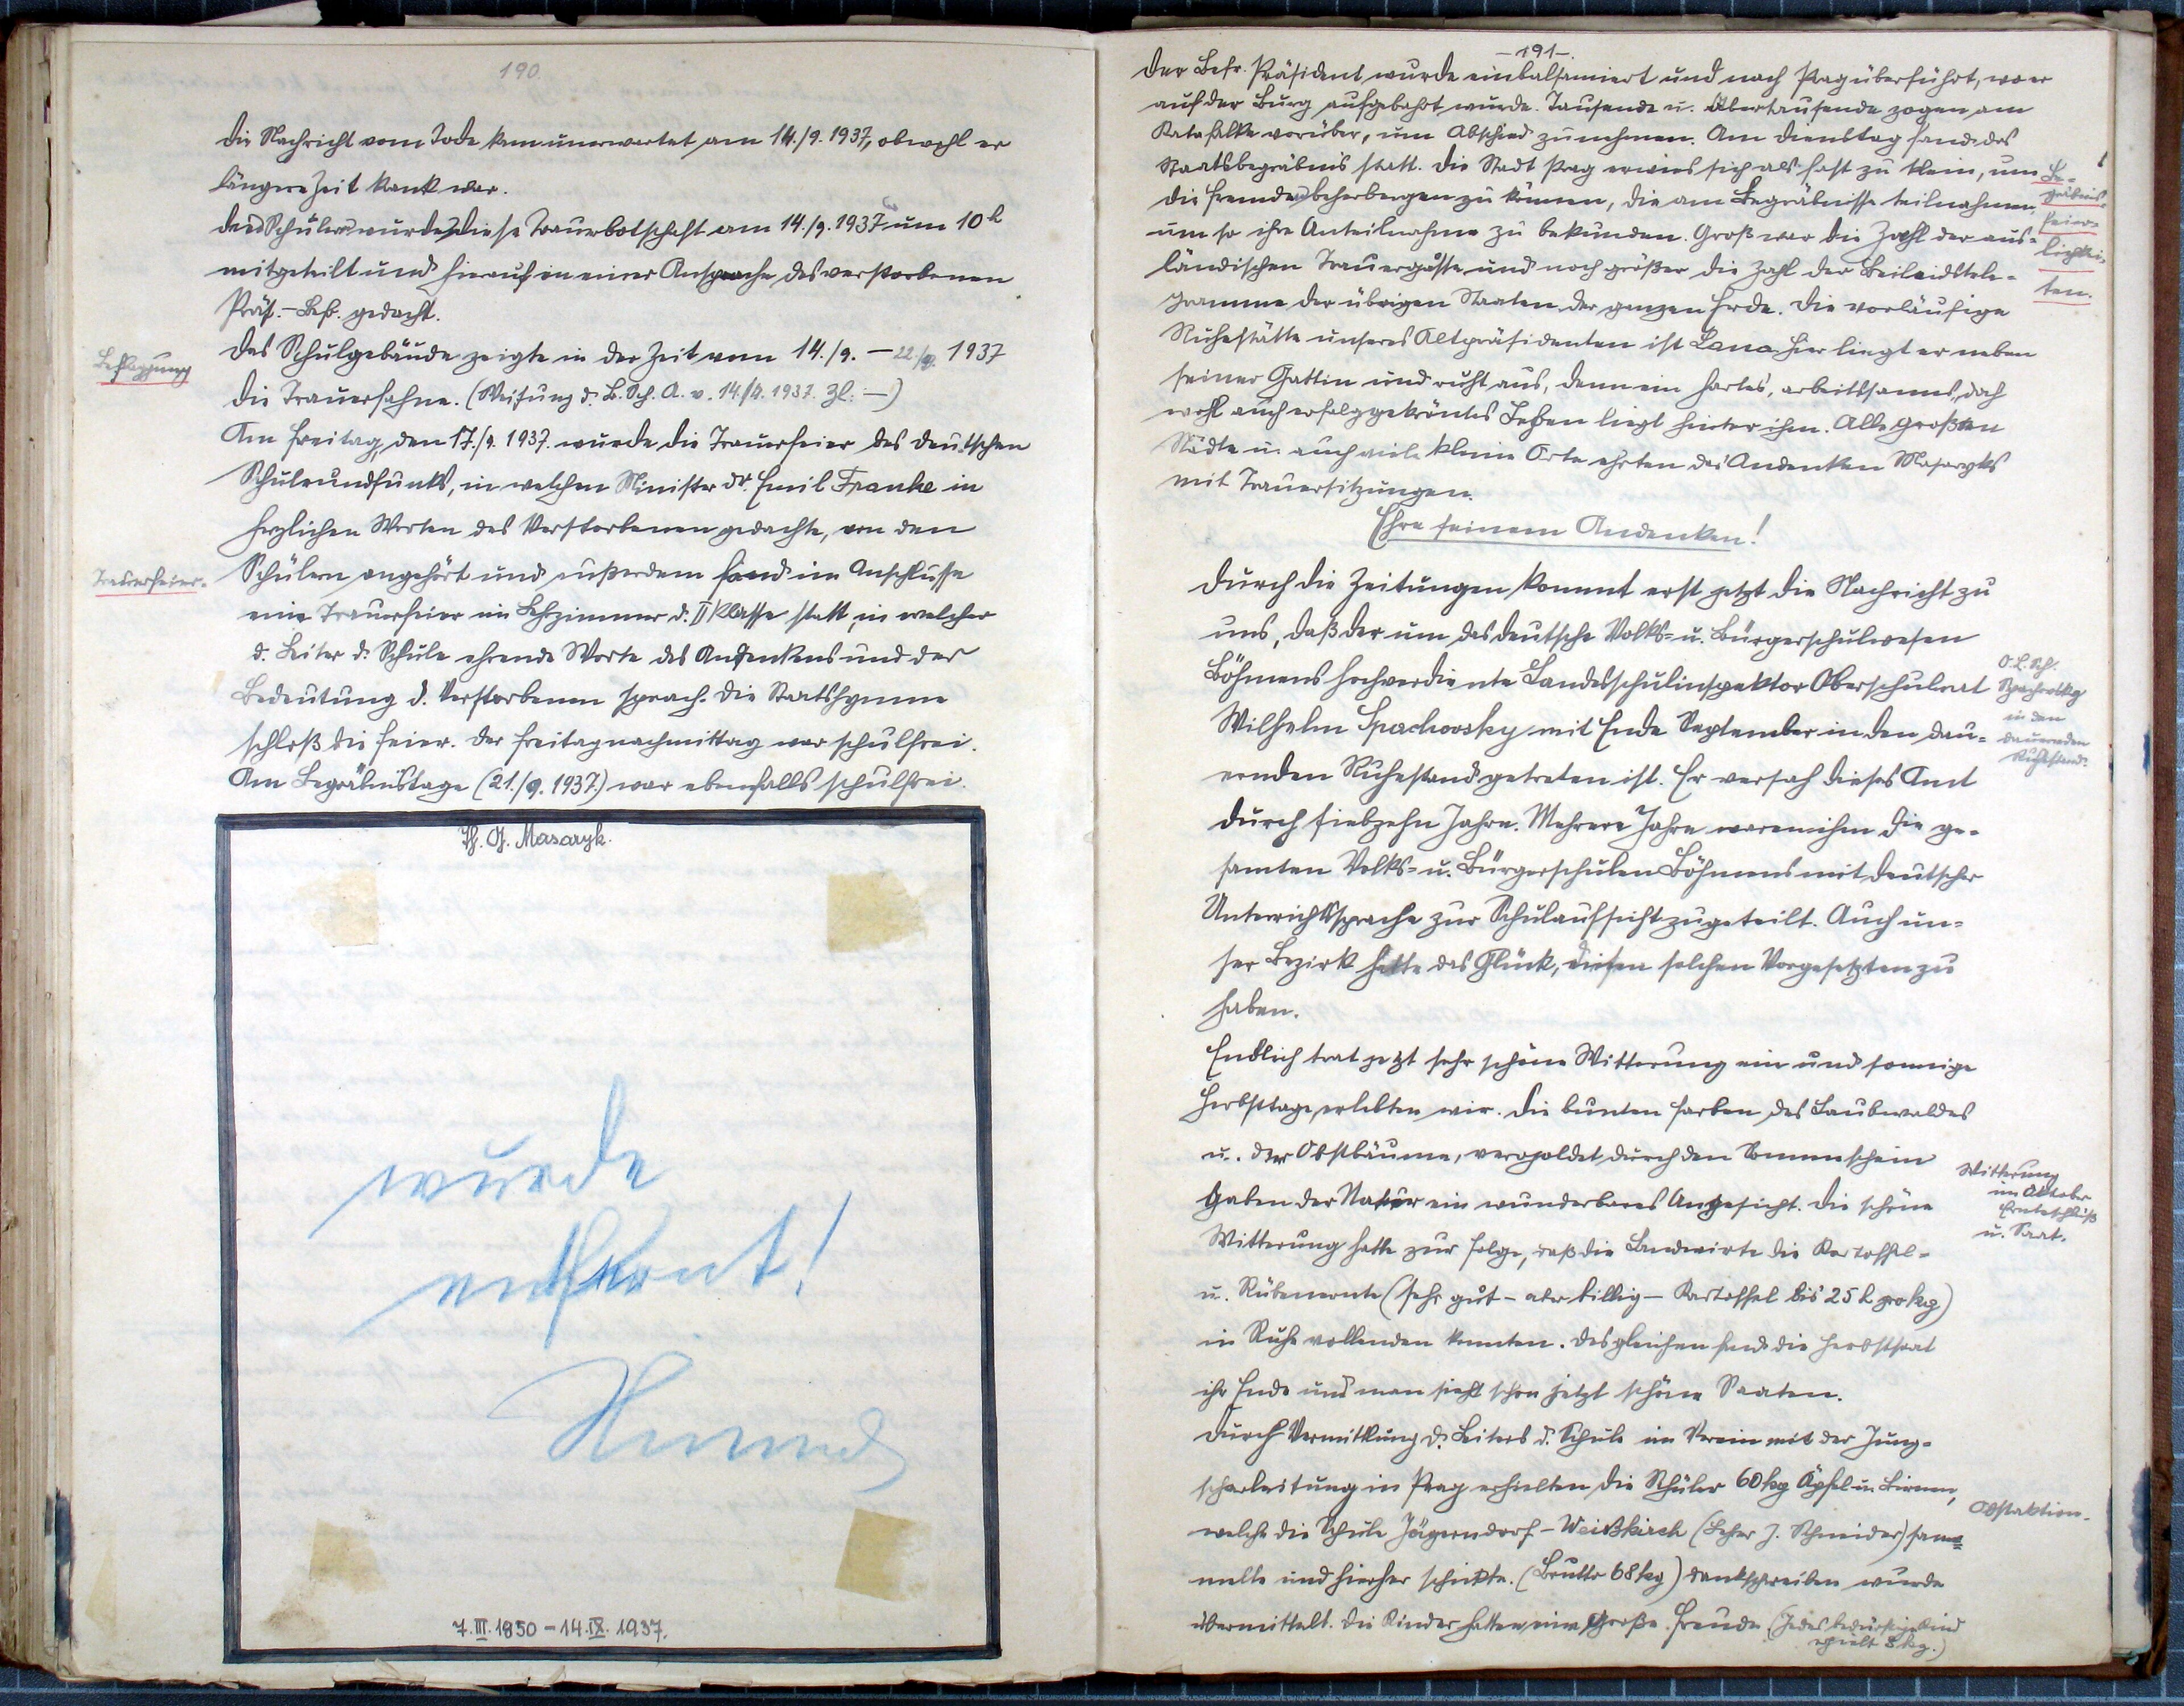 190.
Die Nachricht vom Tode kam unerwartet am 14./9. 1937, obwohl er
längere Zeit krank war.
Den Schülern wurde diese Trauerbotschaft am 14./9. 1937 um 10h
mitgeteilt und hierauf in einer Ansprache des verstorbenen
Präs.-Befr. gedacht.
Beflaggung
Das Schulgebäude zeigte in der Zeit vom 14./9. – 22./9. 1937
die Trauerfahne. (Weisung d. B. Sch. A. v. 14./9. 1937. Zl: –)
Am Freitag, den 17./9. 1937. wurde die Trauerfeier des deutschen
Schulrundfunks, in welchem Minister Dr. Emil Franke in
herzlichen Worten des Verstorbenen gedachte, von den
Trauerfeier.
Schülern angehört und außerdem fand im Anschlusse
eine Trauerfeier im Lehrzimmer d. II Klasse statt, in welcher
d. Leiter d. Schule ehrende Worte des Andenkens und der
Bedeutung d. Verstorbenen sprach. Die Staatshymne
schloß die Feier. Der Freitagnachmittag war schulfrei.
Am Begräbnistage (21./9. 1937.) war ebenfalls schulfrei.
Th. G. Masaryk.
wurde
entfernt!
7. III. 1850 – 14. IX. 1937.
– 191 –.
Der Befr. Präsident wurde einbalsamiert und nach Prag überführt, wo er
auf der Burg aufgebahrt wurde. Tausende u. Abertausende zogen am
Katafalke vorüber, um Abschied zu nehmen. Am Dienstag fand das
Staatsbegräbnis statt. Die Stadt Prag erwies sich als fast zu klein, um
die Fremden beherbergen zu können, die am Begräbnisse teilnahmen,
um so ihre Anteilnahme zu bekunden. Groß war die Zahl der aus-
ländischen Trauergäste und noch größer die Zahl der Beileidstele-
gramme der übrigen Staaten der ganzen Erde. Die vorläufige
Be-
gräbnis-
feier-
lichkei-
ten.
Ruhestätte unseres Altpräsidenten ist Lana. Hier liegt er neben
seiner Gattin und ruht aus, denn ein hartes, arbeitsames, doch
wohl auch erfolggekröntes Leben liegt hinter ihm. Alle großen
Städte u. auch viele kleine Orte ehrten das Andenken Masaryks
mit Trauersitzungen.
Ehre seinem Andenken!
Durch die Zeitungen kommt erst jetzt die Nachricht zu
uns, daß der um das deutsche Volks- u. Bürgerschulwesen
Böhmens hochverdiente Landesschulinspektor Oberschulrat
Wilhelm Spachovsky mit Ende September in den dau-
ernden Ruhestand getreten ist. Er versah dieses Amt
O. L. Sch.
Spachovsky
in den
dauernden
Ruhestand.
durch siebzehn Jahre. Mehrere Jahre waren ihm die ge-
samten Volks- u. Bürgerschulen Böhmens mit deutscher
Unterrichtssprache zur Schulaufsicht zugeteilt. Auch un-
ser Bezirk hatte das Glück, diesen solchen Vorgesetzten zu
haben.
Endlich trat jetzt sehr schöne Witterung ein und sonnige
Herbsttage, erlebten wir. Die bunten Farben des Laubwaldes
u. der Obstbäume, vergoldet durch den Sonnenschein
gaben der Natur ein wunderbares Angesicht. Die schöne
Witterung hatte zur Folge, daß die Landwirte die Kartoffel-
Witterung
im Oktober
Ernteschluß
u. Saat.
u. Rübenernte (sehr gut – aber billig – Kartoffel bis 25 h pro kg)
in Ruhe vollenden konnten. Desgleichen fand die Herbstsaat
ihr Ende und man sieht schon jetzt schöne Saaten.
Durch Vermittlung d. Leiters d. Schule im Verein mit der Jung-
scharleitung in Prag erhielten die Schüler 60 kg Äpfel u. Birnen,
Obstaktion.
welche die Schule Jägerndorf – Weißkirch (Lehrer J. Schneider) sam-
melte und hierher schickte. (Brutto 68 kg) Dankschreiben wurde
übermittelt. Die Kinder hatten eine große Freude (Jedes bedürftige Kind
erhielt 2 kg.)